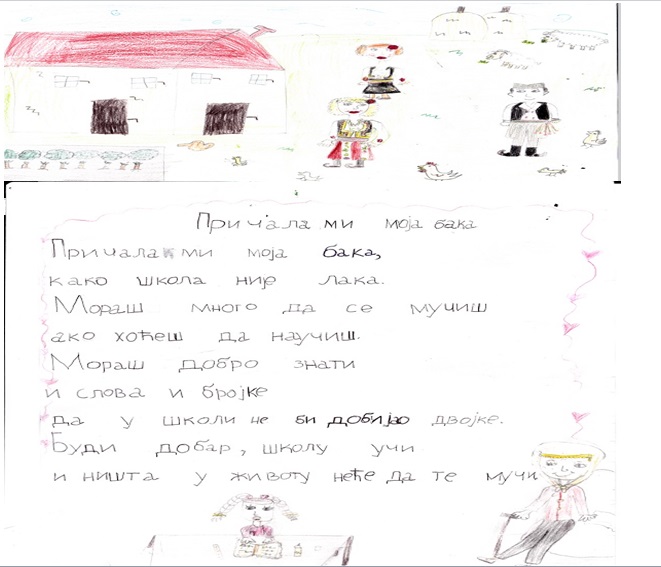 Причала ми моја бака
Причала ми моја бака,
како школа није лака.
Мораш много да се мучиш
ако хоћеш да научиш.
Мораш добро знати
и слова и бројке
да у школи не би добијао двојке.
Буди добар, школу учи
и ништа у животу неће да те мучи